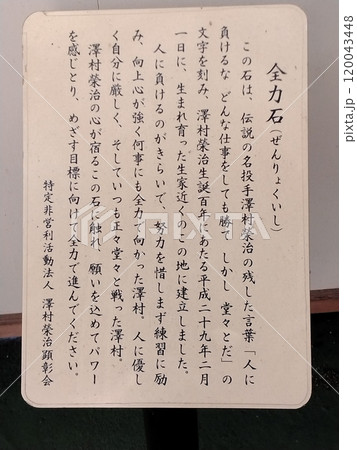 全力石(ぜんりょくいし)
この石は、伝説の名投手澤村榮治の残した言葉「人に
負けるな どんな仕事をしても勝て しかし 堂々とだ」の
文字を刻み、澤村榮治生誕百年にあたる平成二十九年二月
一日に、生まれ育った生家近くのこの地に建立しました。
人に負けるのがきらいで、努力を惜しまず練習に励
み、向上心が強く何事にも全力で向かった澤村。人に優し
く自分に厳しく、そしていつも正々堂々と戦った澤村。
澤村榮治の心が宿るこの石に触れ、願いを込めてパワー
を感じとり、めざす目標に向けて全力で進んでください。
特定非営利活動法人 澤村榮治顕彰会
PIXTA
pixta.jp - 120043448